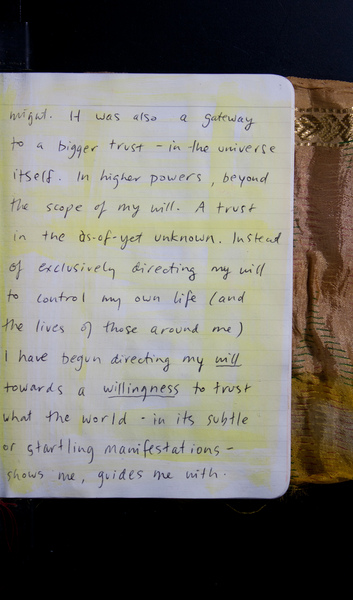 might. It was also a gateway
to a bigger trust - in the universe
itself. In higher powers, beyond
the scope of my will. A trust
in the as-of-yet unknown. Instead
of exclusively directing my will
to control my own life (and
the lives of those around me)
I have begun directing my will
towards a willingness to trust
what the world - in its subtle
or startling manifestations -
shows me, guides me with.